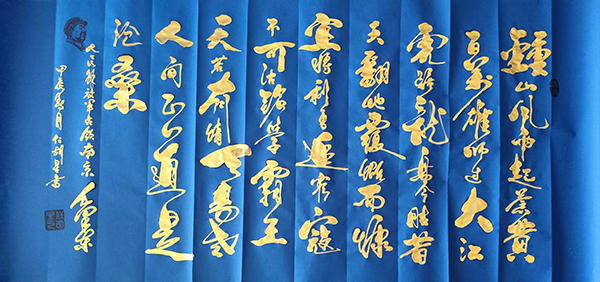 鐘山风雨起蒼黄
百万雄师过大江
虎踞龙盘今胜昔
天翻地覆慨而慷
宜将剩勇追穷寇
不可沽名学霸王
天若有情天亦老
人间正道是
沧桑
人民解放军占领南京
甲辰夏月